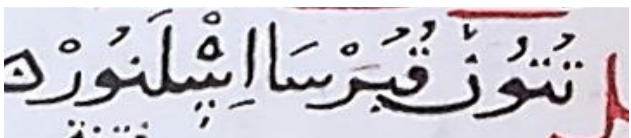 تُتُونْ قُبَرْسَا اِشْلَنُورْ